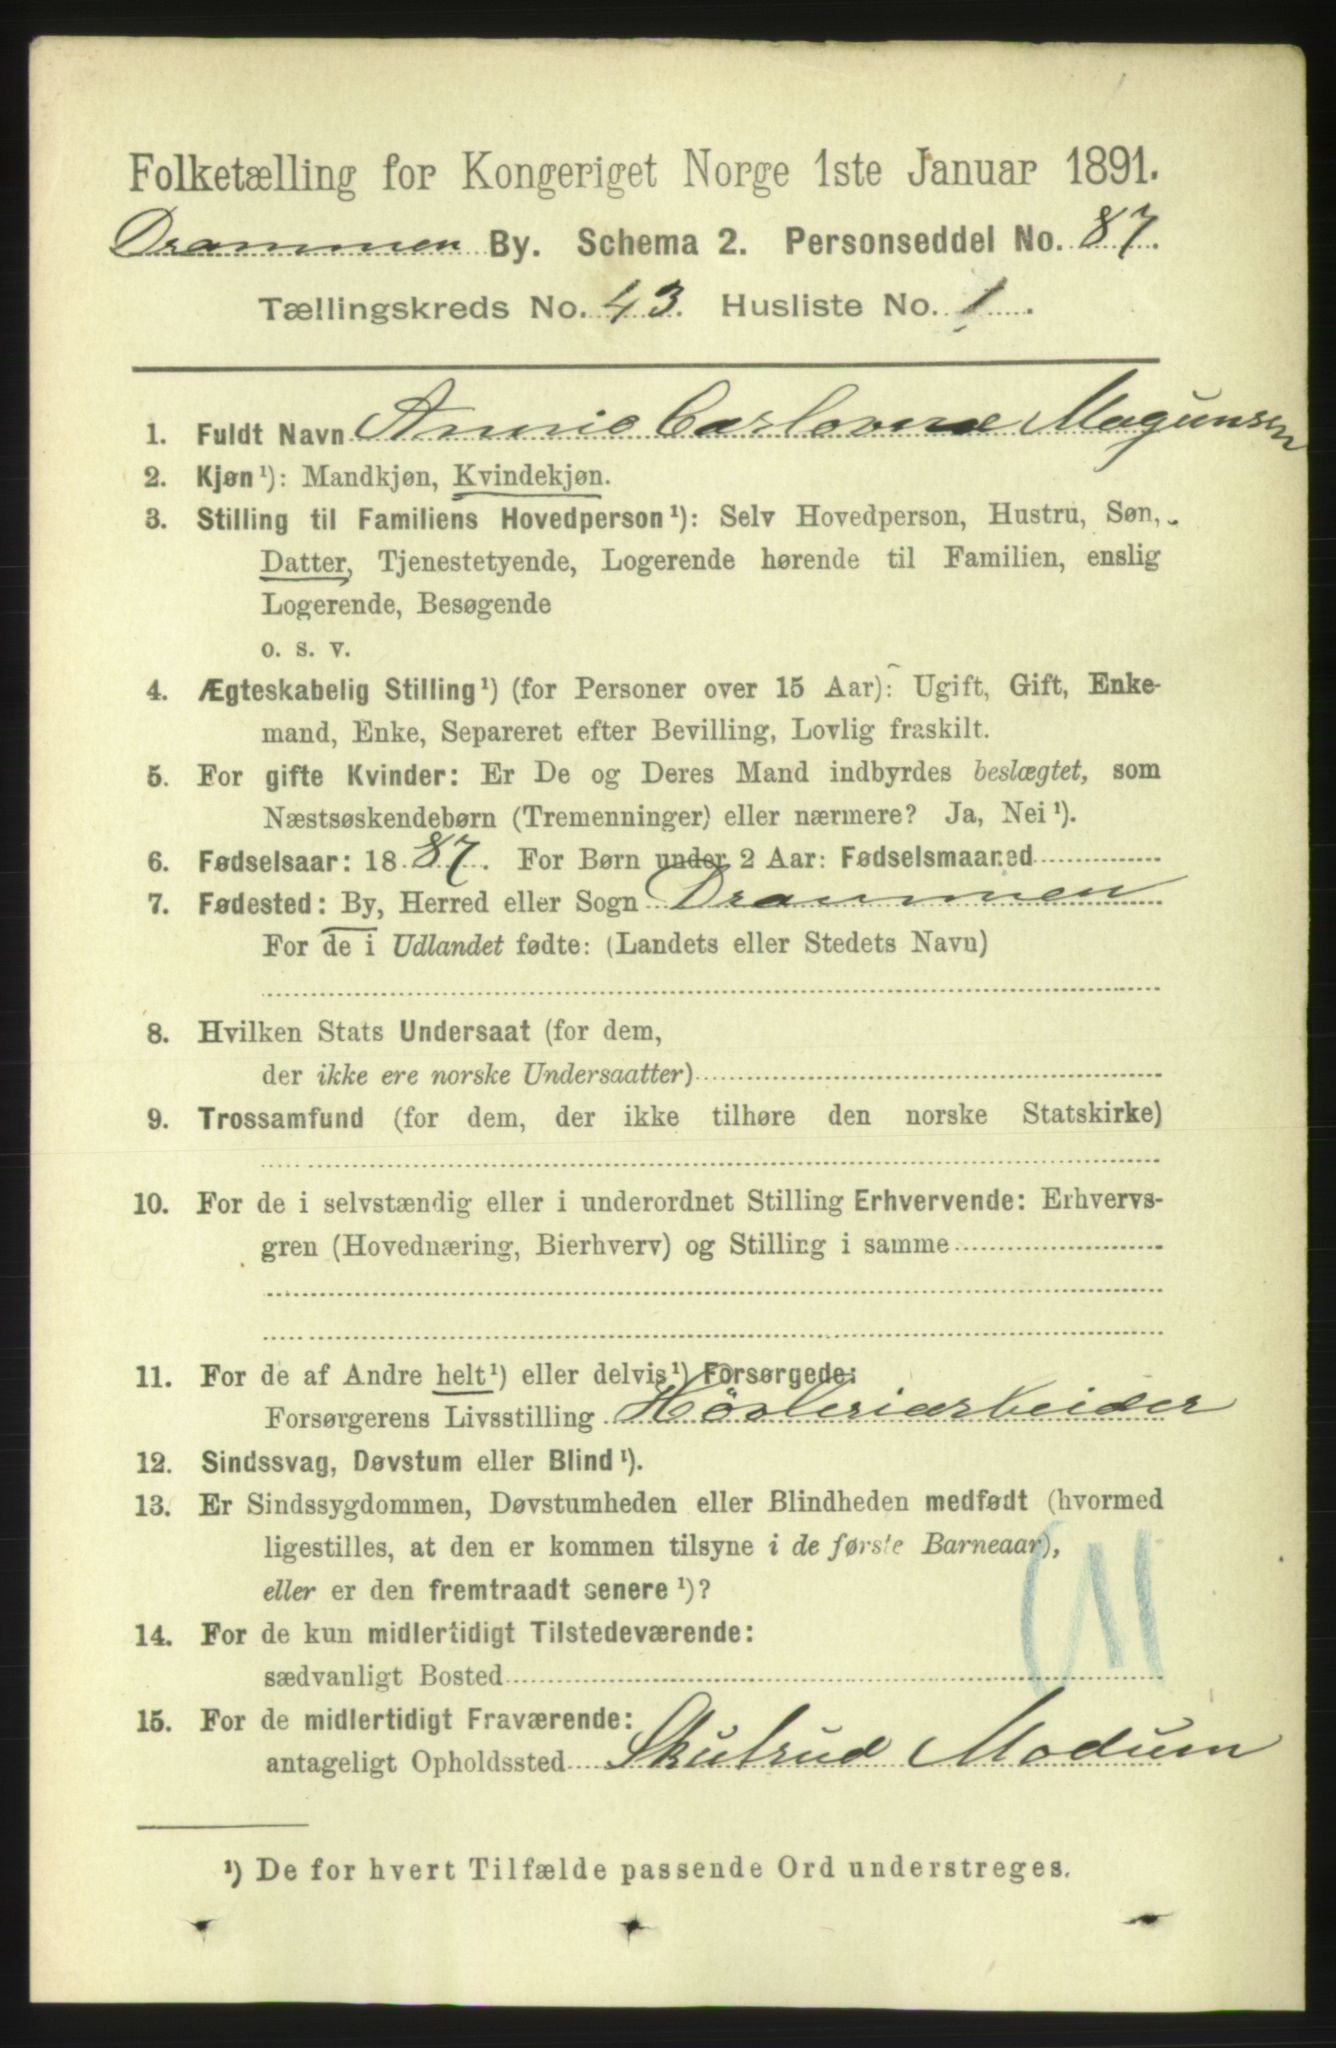 Folketælling for Kongeriget Norge 1ste Januar 1891.
Drammen By. Schema 2. Personseddel No. 87.
Tællingskreds No. 43. Husliste No. 1.
1. Fuldt Navn Annie Carlovne Magunsen
2. Kjøn¹): Mandkjøn, Kvindekjøn.
3. Stilling til Familiens Hovedperson¹): Selv Hovedperson, Hustru, Søn,
Datter, Tjenestetyende, Logerende hørende til Familien, enslig
Logerende, Besøgende
o. s. v.
4. Ægteskabelig Stilling¹) (for Personer over 15 Aar): Ugift, Gift, Enke-
mand, Enke, Separeret efter Bevilling, Lovlig fraskilt.
5. For gifte Kvinder: Er De og Deres Mand indbyrdes beslægtet, som
Næstsøskendebørn (Tremenninger) eller nærmere? Ja, Nei¹).
6. Fødselsaar: 1887. For Børn under 2 Aar: Fødselsmaaned
7. Fødested: By, Herred eller Sogn Drammen
For de i Udlandet fødte: (Landets eller Stedets Navn)
8. Hvilken Stats Undersaat (for dem,
der ikke ere norske Undersaatter)
9. Trossamfund (for dem, der ikke tilhøre den norske Statskirke)
10. For de i selvstændig eller i underordnet Stilling Erhvervende: Erhvervs-
gren (Hovednæring, Bierhverv) og Stilling i samme
11. For de af Andre helt¹) eller delvis¹) Forsørgede:
Forsørgerens Livsstilling Høvleriarbeider
12. Sindssvag, Døvstum eller Blind¹).
13. Er Sindssygdommen, Døvstumheden eller Blindheden medfødt (hvormed
ligestilles, at den er kommen tilsyne i de første Barneaar),
eller er den fremtraadt senere¹)?
14. For de kun midlertidigt Tilstedeværende:
sædvanligt Bosted
15. For de midlertidigt Fraværende:
antageligt Opholdssted Skutrud Modum
¹) De for hvert Tilfælde passende Ord understreges.